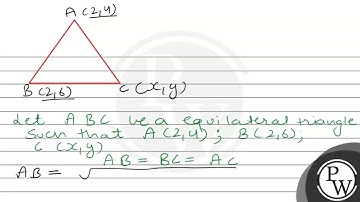 A (2,4)
B (2,6)
C (x,y)
Let ABC be a equilateral triangle
such that A(2,4); B(2,6);
C (x,y)
AB = BC = AC
AB = √
PW